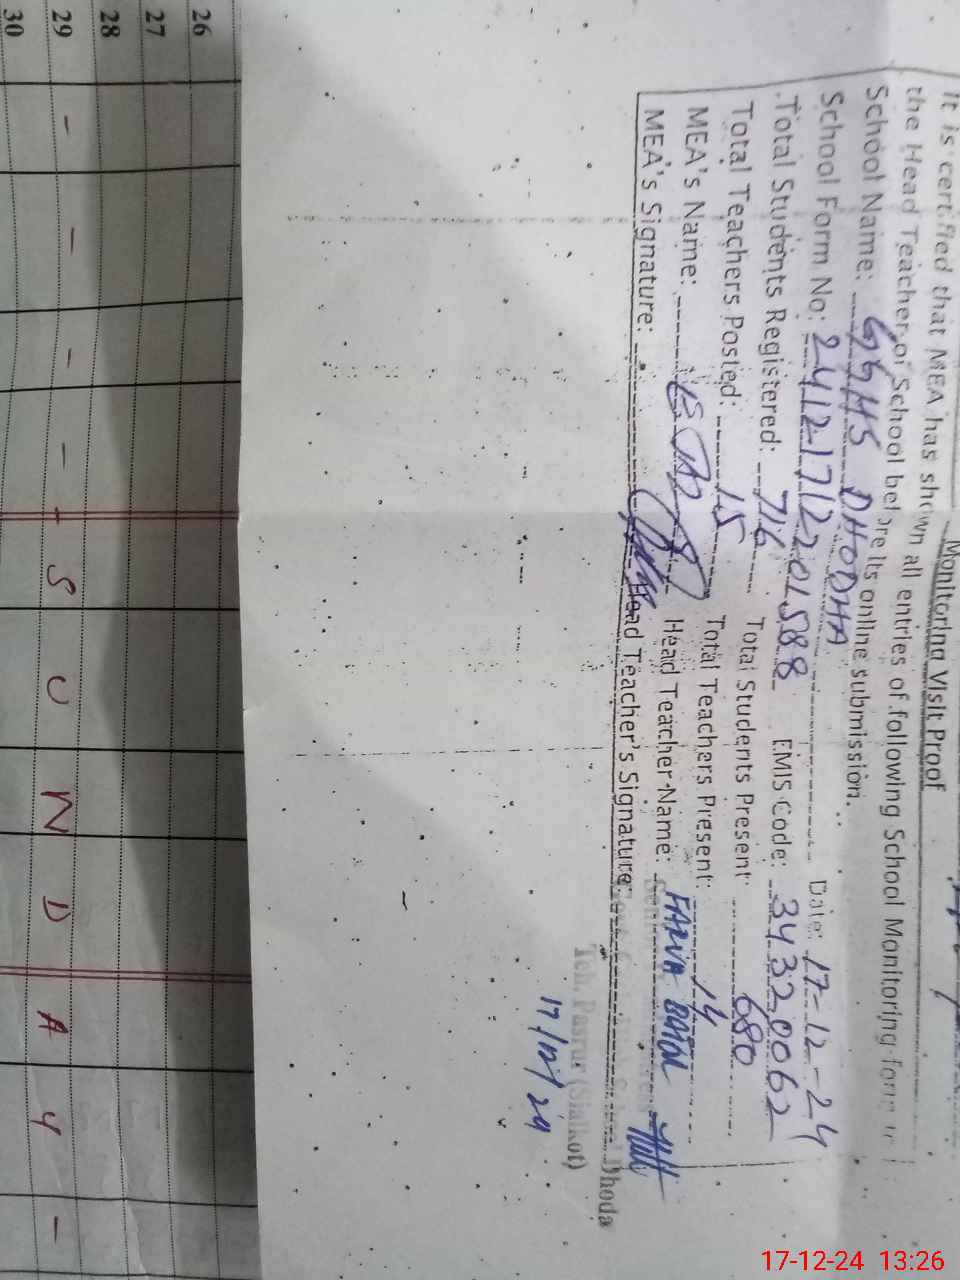 Monitoring Visit Proof
It is certified that MEA has shown all entries of following School Monitoring form
the Head Teacher of School before its online submission.
School Name: GGHS DHODHA Date: 17-12-24
School Form No: 24121712201588 EMIS Code: 34320062
Total Students Registered: 716 Total Students Present 680
Total Teachers Posted: 15 Total Teachers Present: 14
MEA's Name: Head Teacher Name:
MEA's Signature: Head Teacher's Signature:
Dhoda
Teh, Pasrur (Sialkot)
17/12/24
26
27
28
29 - - - - S U N D A Y -
30
17-12-24 13:26